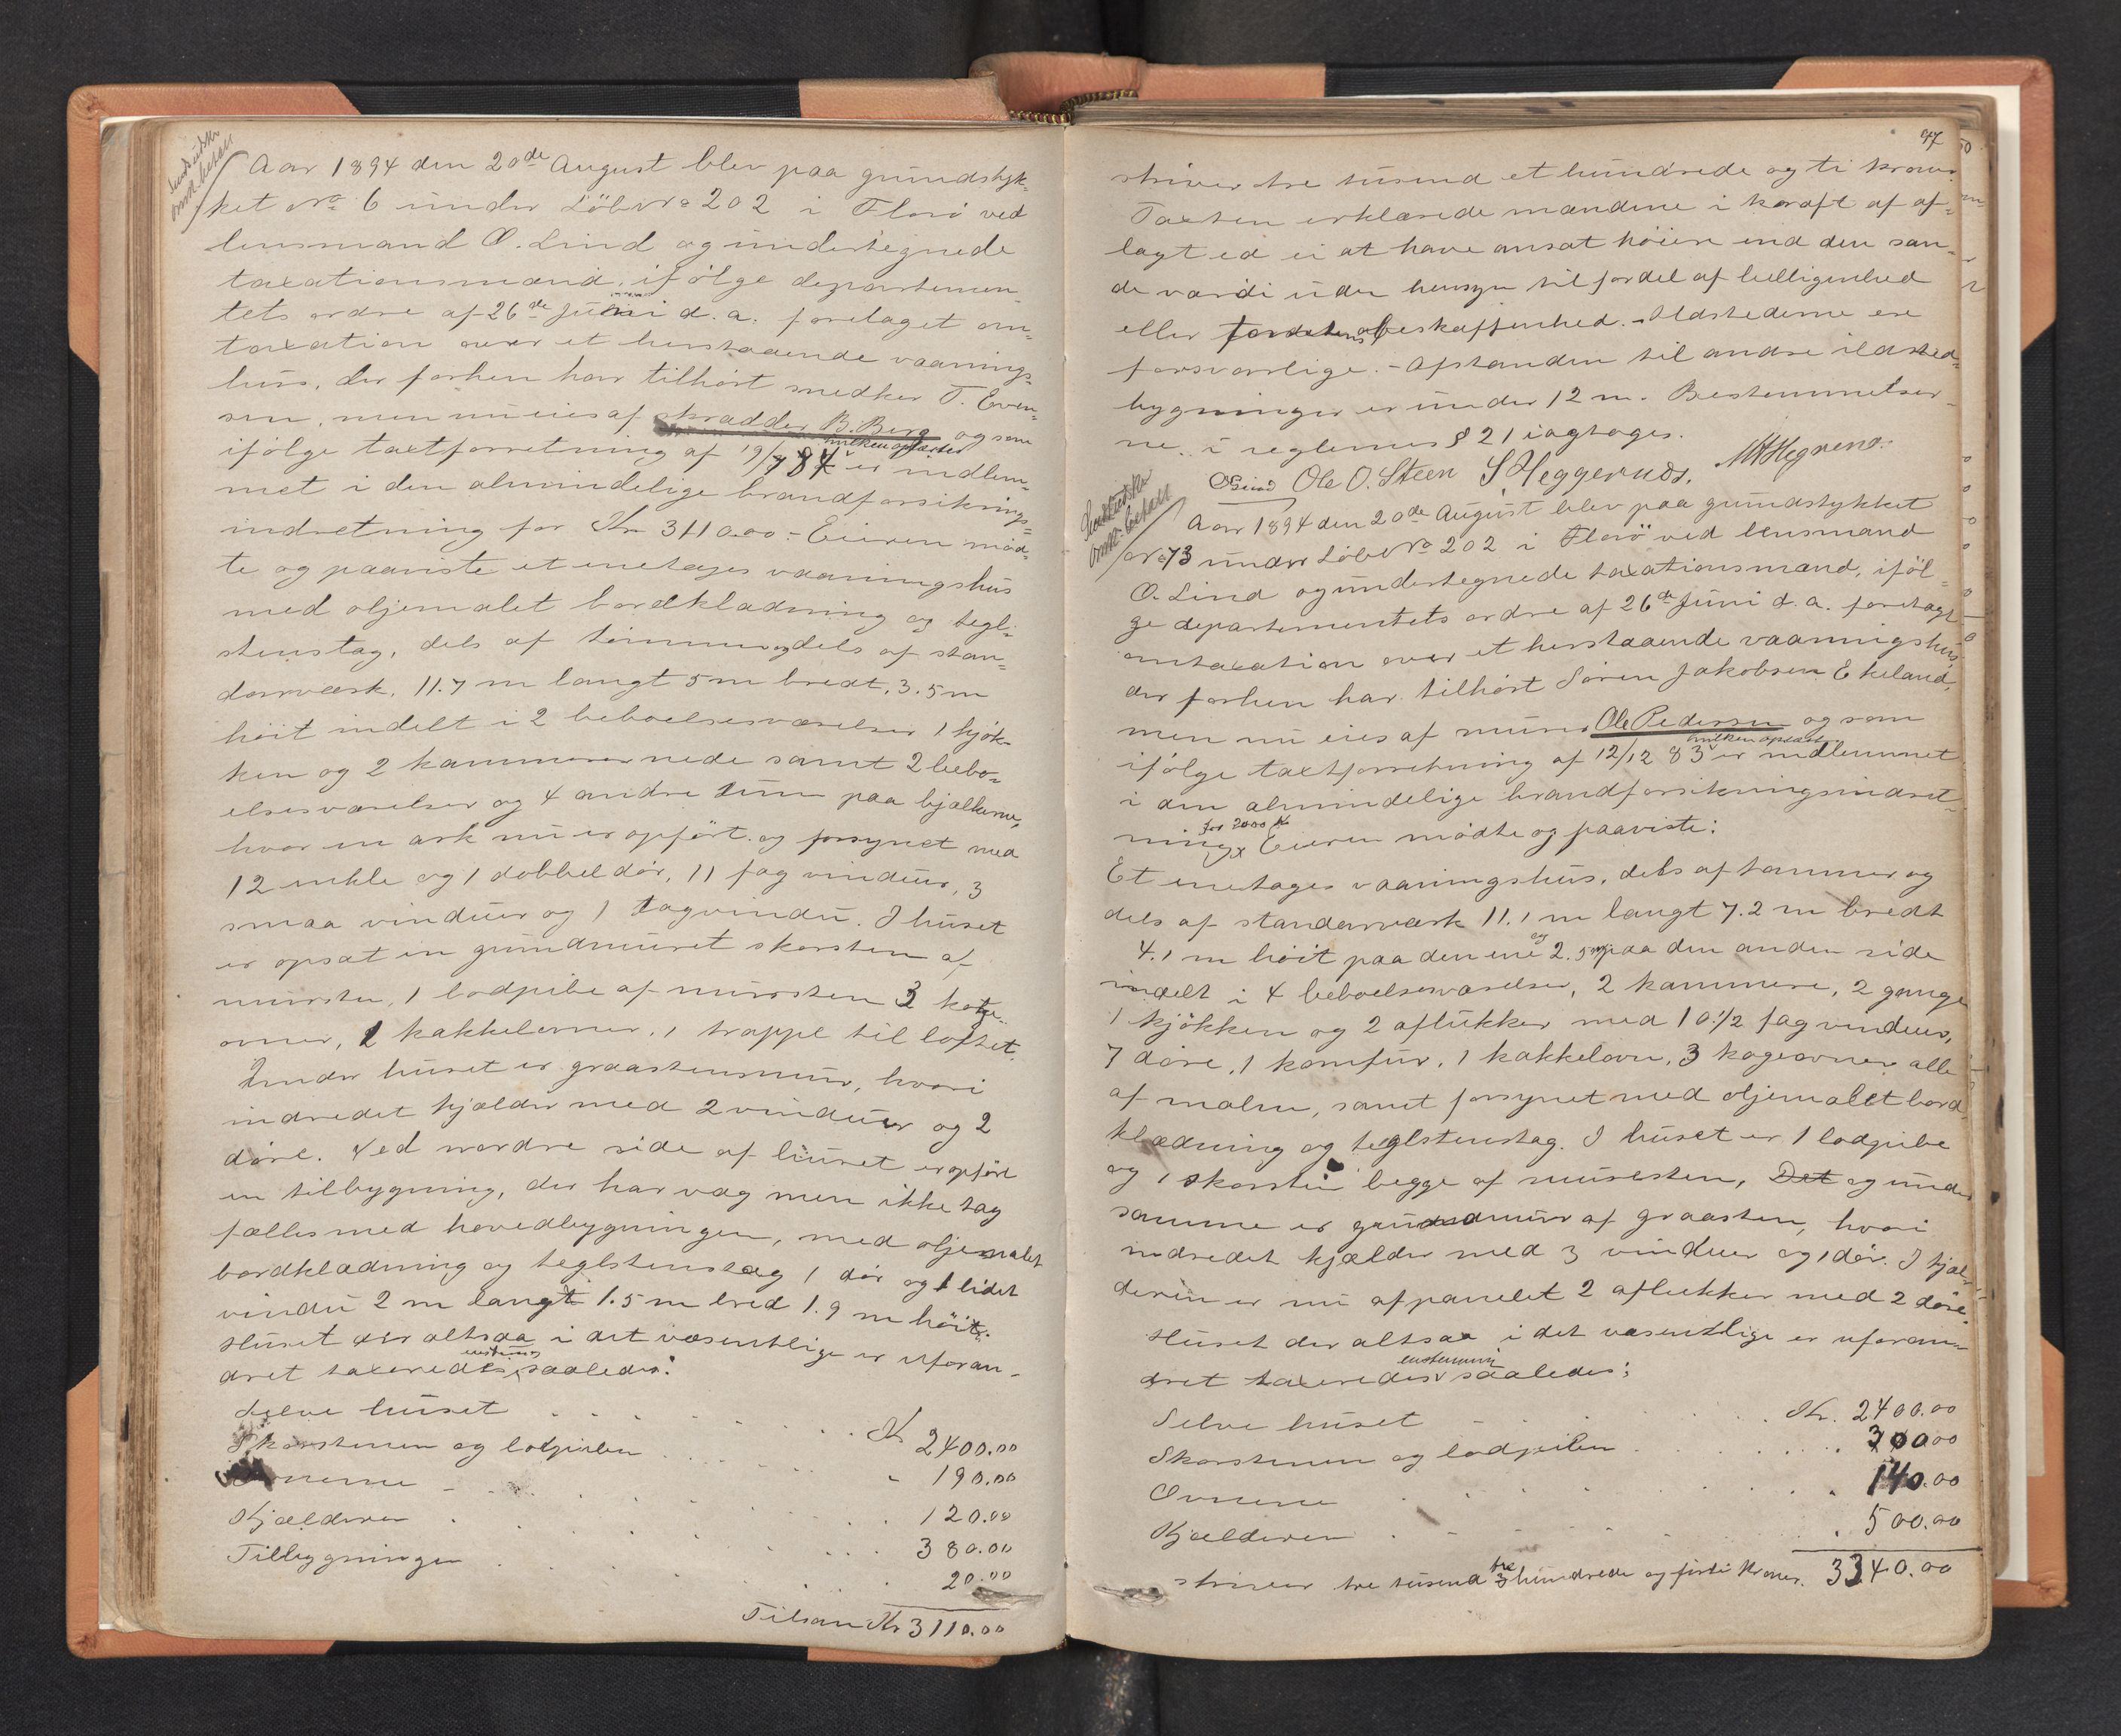 Aar 1894 den 20de August blev paa grundstyk-
ket No 6 under Löbe No 202 i Florö ved
lensmand O. Lind og undertegnede
taxationsmænd, ifölge departemen-
tets ordre af 26de Juni d.a. foretaget om-
taxation over et herstaaende vaanings-
hus, der forhen har tilhört snedker T. Even-
sen, men nu eies af skrædder B. Berg og som
ifölge taxtforretning af 19/7 84 er indlem-
met i den almindelige brandforsikrings-
indretning for Kr 3110.00 - Eieren mød-
te og paaviste et enetages vaaningshus
med oljemalet bordklædning og tegl-
stenstag, dels af tømmer og dels af stan-
darværk, 11.7 m langt 5 m bredt, 3.5 m
höit indelt i 2 beboelsesværelser 1 kjök-
ken og 2 kammere nede samt 2 bebo-
elsesværelser og 4 andre rum paa bjælkerne,
hvor en ark nu er opfört og forsynet med
12 enkle og 1 dobbel dör, 11 fag vinduer, 3
smaa vinduer og 1 tagvindu. I huset
er opsat en grundmuret skorsten af
mursten, 1 lodpibe af mursten 3 koge-
ovner, 2 kakkelovner, 1 trappe til loftet.
Under huset er graastensmur, hvori
indredet kjælder med 2 vinduer og 2
döre. Ved nordre side af huset er opfört
en tilbygning, der har væg men ikke tag
fælles med hovedbygningen, med oljemalet
bordklædning og teglstenstag 1 dör og 1 lidet
vindu 2 m langt 1.5 m bred 1.9 m höit.
Huset der altsaa i det væsentlige er uforan-
dret taxeredes enstemmig saaledes:
Selve huset Kr 2400.00
Skorstenen og lodpiben 190.00
Ovnene 120.00
Kjælderen 380.00
Tilbygningen 20.00
Tilsam Kr 3110.00
97
skriver tre tusend et hundrede og ti kroner.
Taxten erklærede mændene i kraft af af-
lagt ed ei at have ansat höiere end den san-
de værdi uden hensyn til fordel af beliggenhed
eller beskaffenhed. - Ildstederne ere
forsvarlige. - Afstanden til andre ildsted-
bygninger er under 12 m. Bestemmelser-
ne i reglernes § 21 iagtages.
OLind Ole O. Steen S Heggernæs.
Aar 1894 den 20de August blev paa grundstykket
No 73 under Löbe No 202 i Florö ved lensmand
O. Lind og undertegnede taxationsmænd, iföl-
ge departementets ordre af 26de Juni d.a. foretaget
omtaxation over et herstaaende vaaningshus
der forhen har tilhört Sören Jakobsen Ekeland,
men nu eies af murer Ole Pedersen og som
ifölge taxtforretning af 12/12 83 er indlemmet
i den almindelige brandforsikringsindret-
ning for 2000 Kr Eieren mødte og paaviste:
Et enetages vaaningshus, dels af tømmer og
dels af standarværk 11.1 m langt 7.2 m bredt
4.1 m höit paa den ene og 2.5 m paa den anden side
indelt i 4 beboelsesværelser, 2 kammere, 2 gange
1 kjökken og 2 aflukker med 10 1/2 fag vinduer,
7 döre, 1 komfur, 1 kakkelovn, 3 kogeovner alle
af malm, samt forsynet med oljemalet bord-
klædning og teglstenstag. I huset er 1 lodpibe
og 1 skorsten begge af mursten, Det og under
samme er grundmur af graasten, hvori
indredet kjælder med 3 vinduer og 1 dör. I kjæl-
deren er nu afpanelet 2 aflukker med 2 döre.
Huset der altsaa i det væsentlige er uforan-
dret taxeredes enstemmig saaledes:
Selve huset Kr. 2400.00
Skorstenen og lodpiben 300.00
Ovnene 140.00
Kjælderen 500.00
skriver tre tusend tre hundrede og firti Kroner. 3340.00